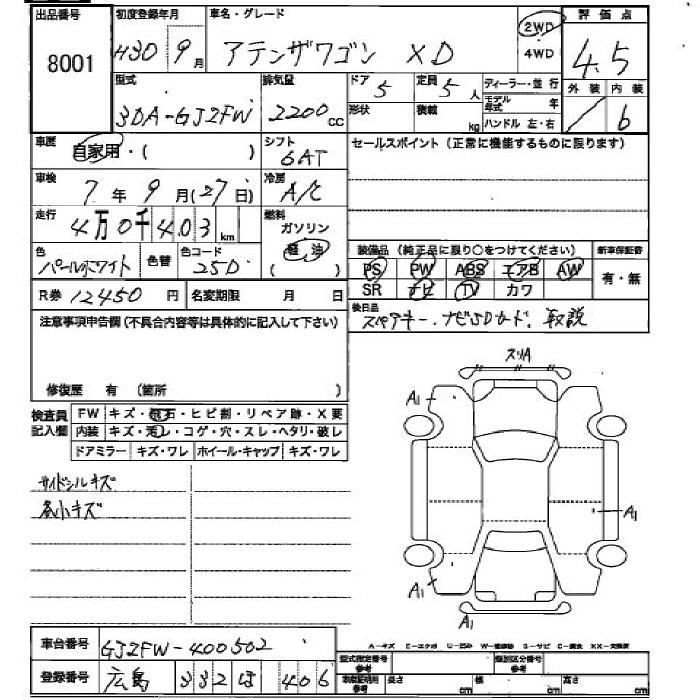 出品番号 初度登録年月 車名・グレード 2WD 評価点
8001 H30 9月 アテンザワゴン XD 4WD 4.5
型式 排気量 ドア 5 定員 5人 ディーラー・並行 外装 内装
3DA-GJ2FW 2200cc 形状 積載 kg モデル年式 年 / 6
ハンドル 左・右
車歴 自家用・( ) シフト 6AT セールスポイント(正常に機能するものに限ります)
車検 7年9月(27日) 冷房 A/C
走行 4万0千403km 燃料 ガソリン
軽油
( )
色 パールホワイト 色替 色コード 25D 装備品(純正品に限り○をつけてください) 新車保証書
PS PW ABS エアB AW 有・無
R券 12450円 名変期限 月 日 SR ナビ TV カワ
注意事項申告欄(不具合内容等は具体的に記入して下さい) 後日品
スペアキー、ナビSDカード、取説
修復歴 有 (箇所 )
スリA
検査員記入欄 FW キズ・飛石・ヒビ割・リペア跡・X要 A1
内装 キズ・汚レ・コゲ・穴・スレ・ヘタリ・破レ
ドアミラー キズ・ワレ ホイール・キャップ キズ・ワレ
サイドシルキズ
各小キズ A1
A1
A1
車台番号 GJ2FW-400502 A-キズ E-エクボ U-凹み W-補修跡 S-サビ C-腐食 XX-交換済
登録番号 広島 332 ほ 406 型式指定番号 参考 類別区分番号 参考
車庫証明用 参考 長さ cm 幅 cm 高さ cm